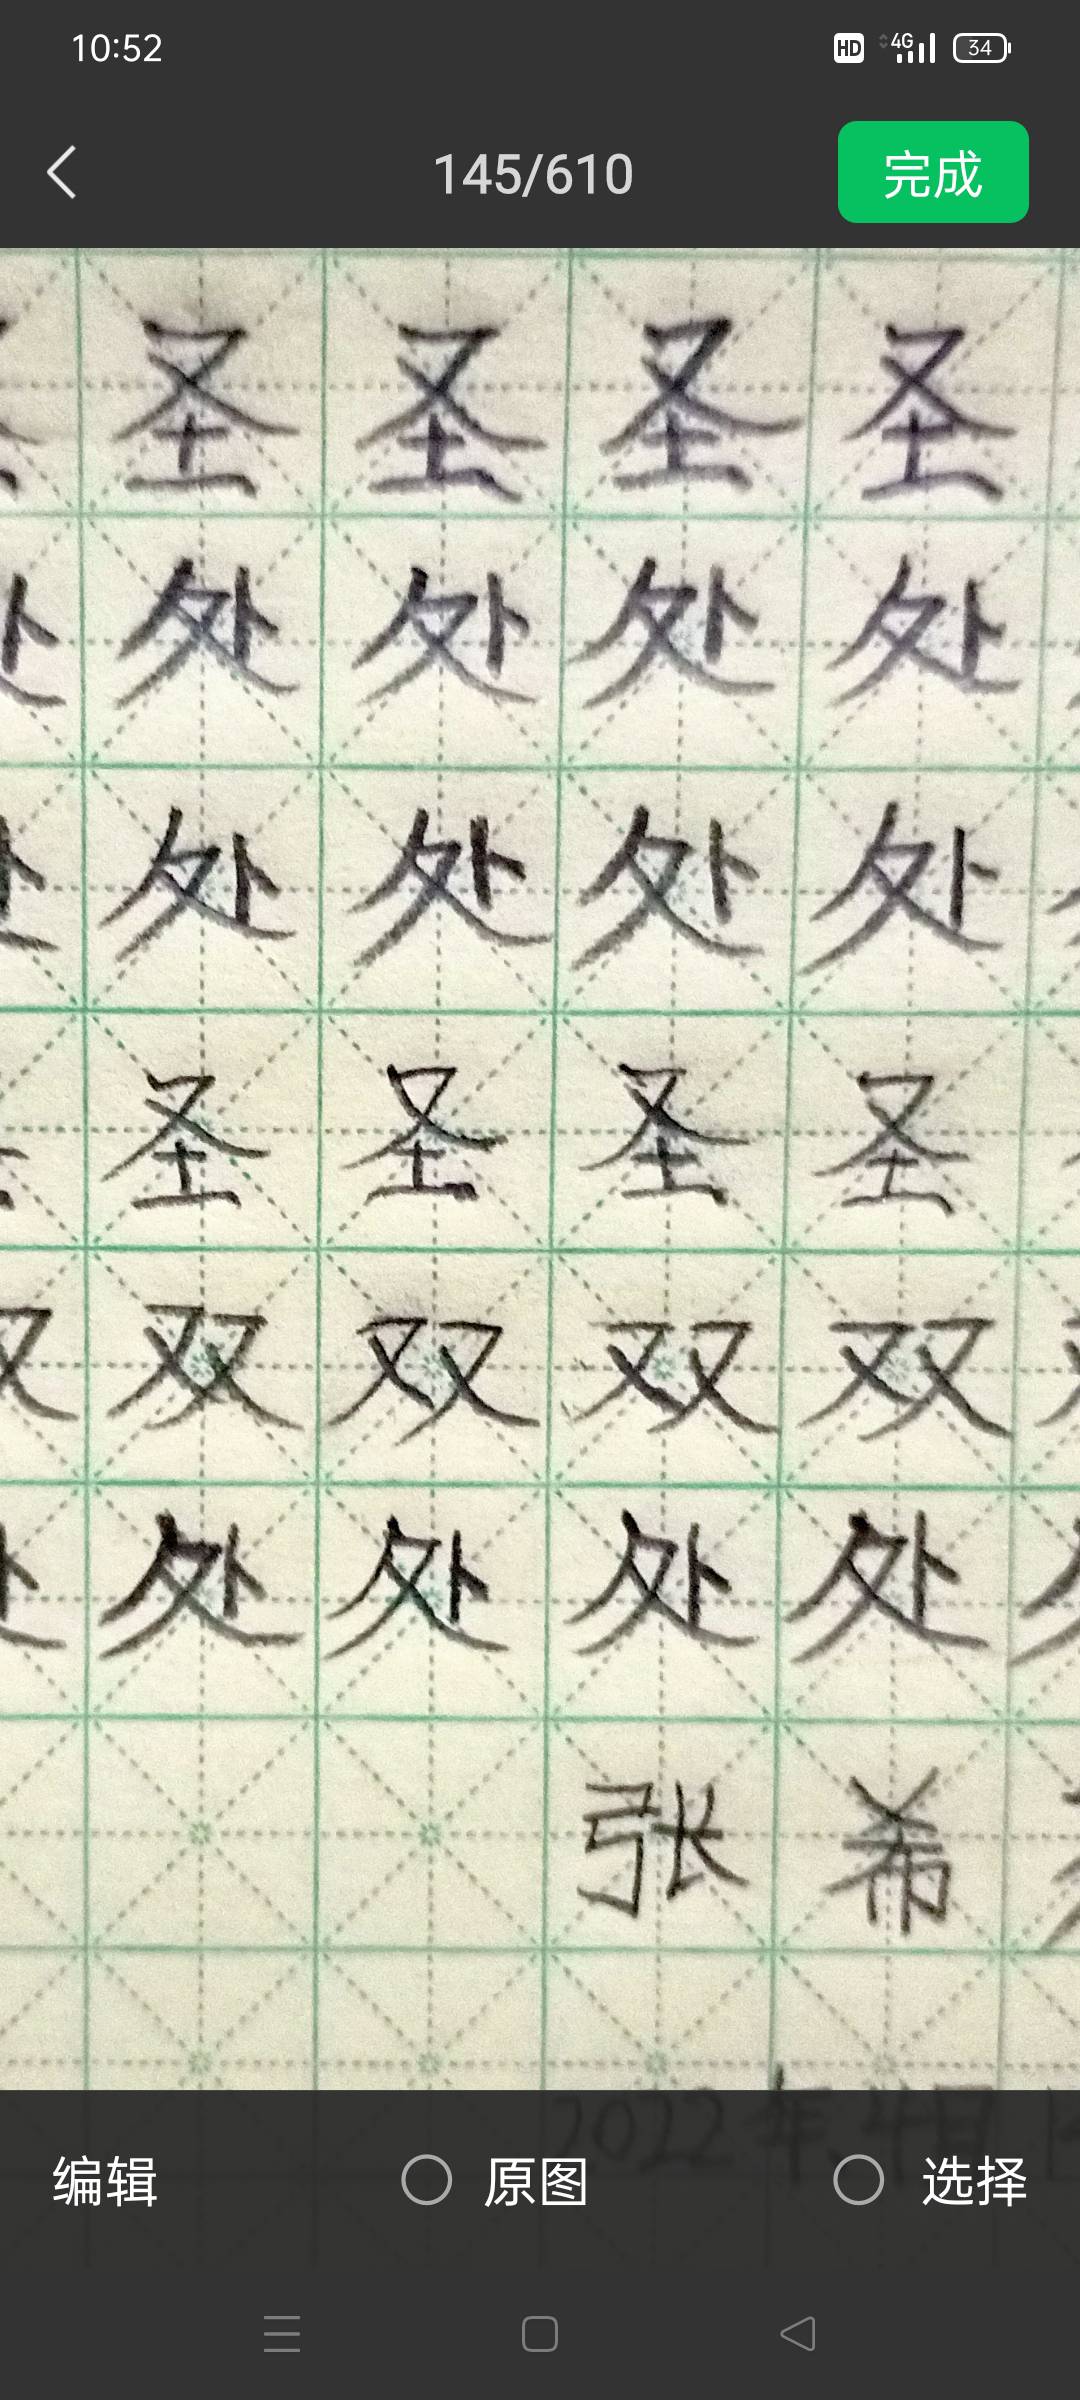 10:52
HD 4G 34
145/610
完成
圣 圣 圣 圣
处 处 处 处
处 处 处 处
圣 圣 圣 圣
双 双 双 双
处 处 处 处
张 希
2022年4月
编辑 原图 选择